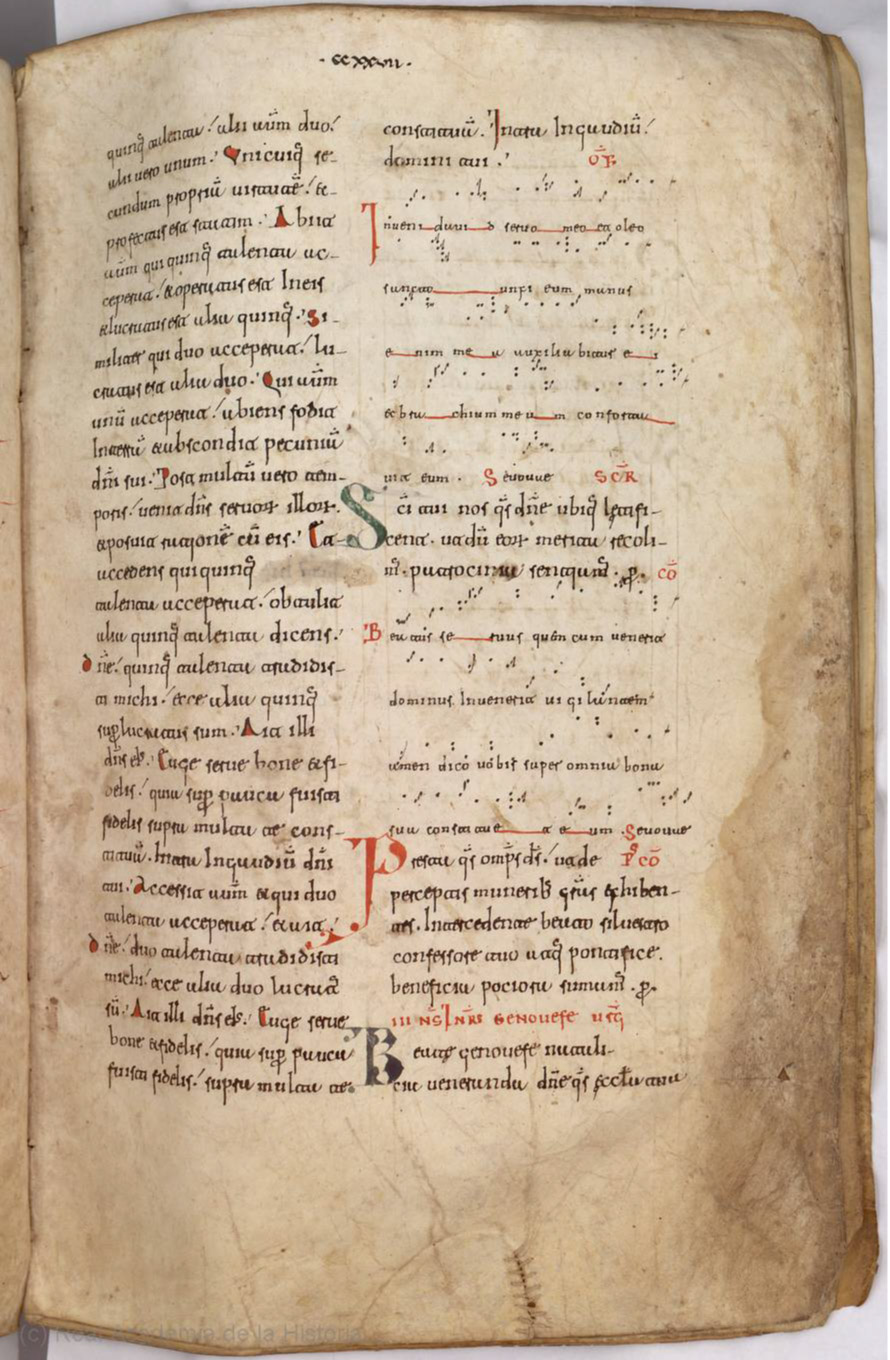 · ccxxvii ·
quinq̄ talenta. alii uū duo.
alii uero unum. Unicuiq̄ se-
cundum propriū uirtutē. &
profectus est statim. Abiit
autem qui quinq̄ talenta ac-
ceperat. & operatus est In eis
& lucratus est alia quinq̄. Si-
militer qui duo acceperat. lu-
cratus est alia duo. Qui autē
unū acceperat. abiens fodit
In terrā & abscondit pecuniā
dn̄i sui. Post multū uero tem-
poris. uenit dn̄s seruorum illorum.
& posuit rationē cū eis. Et ac-
accedens qui quinq̄
talenta acceperat. obtulit
alia quinq̄ talenta dicens.
dn̄e. quinq̄ talenta tradidis-
ti michi. ecce alia quinq̄
sup̄lucratus sum. Ait illi
dn̄s ei'. Euge serue bone & fi-
delis. quia sup̄ pauca fuisti
fidelis supra multa te cons-
tituā. Intra In gaudiū dn̄i
tui. Accessit autē & qui duo
talenta acceperat. & ait.
dn̄e. duo talenta tradidisti
michi. ecce alia duo lucratꝰ
sū. Ait illi dn̄s ei'. Euge serue
bone & fidelis. quia sup̄ pauca
fuisti fidelis. supra multa te
constituā. Intra In gaudiū.
domini tui. OF̄
Inueni dauid seruo meo et oleo
suncto unxi eum manus
enim mea auxiliabitur ei
et brachium meum confortau
uit eum. Seuouae SCR̄
Sc̄i tui nos q̄s dn̄e ubiq̄ letifi-
cent. ut dū eorum merita recoli-
m̄. patrocinia sentiam̄. p̄. CŌ
Beatus seruus quem cum uenerit
dominus Inuenerit uigilantem
amen dico uobis super omnia bona
sua constituet eum. Seuouae
Presta q̄s omp̄s ds̄. ut de P̄CŌ
perceptis munerib; gr̄as exhiben-
tes. Intercedente beato siluestro
confessore tuo atq̄ pontifice.
beneficia potiora sumam̄. p̄.
III NS̄ IANR̄ GENOUEFE UIRḠ
Beate genouefe natali-
cia ueneranda dn̄e q̄s eccl̄ia tua